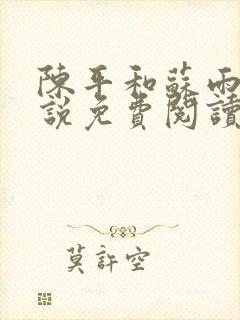 陳平和蘇雨
說免費閱讀
莫許空